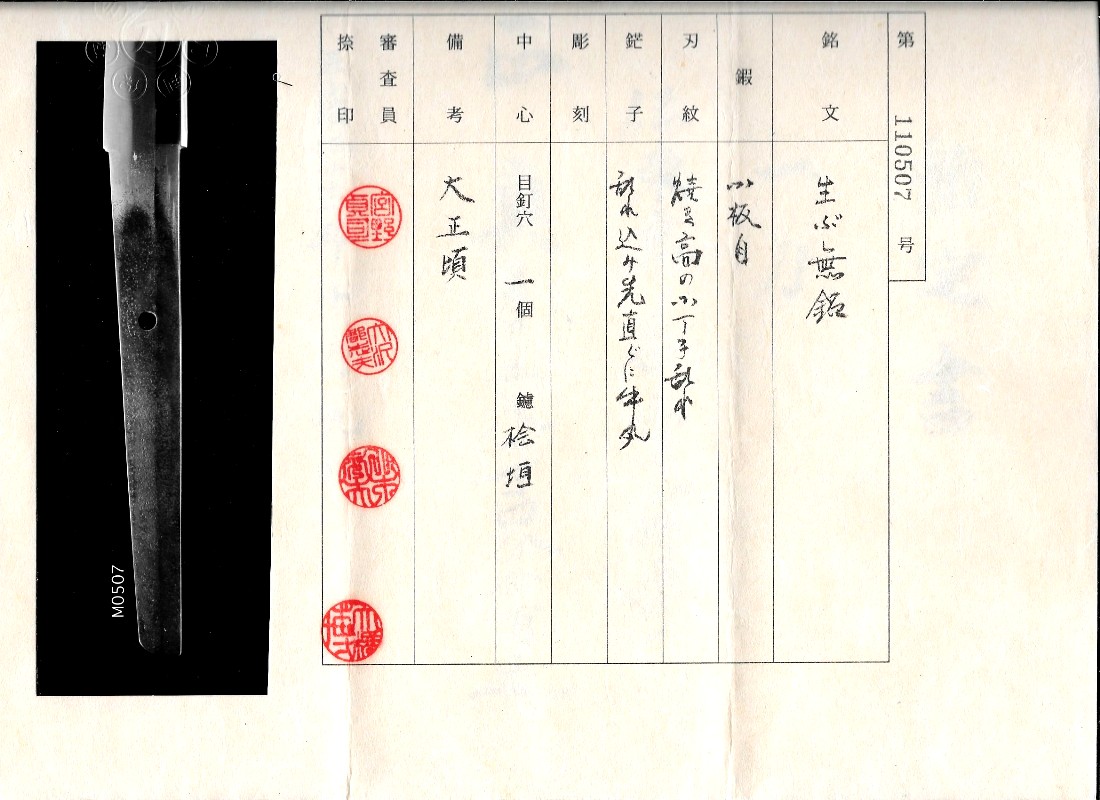 第 110507 号
銘文
生ぶ無銘
鍜
小板目
刃紋
焼き高の小丁子乱れ
鋩子
乱れ込み先直ぐに小丸
彫刻
中心
目釘穴 一個 鑢 桧垣
備考
大正頃
審査員
捺印
M0507